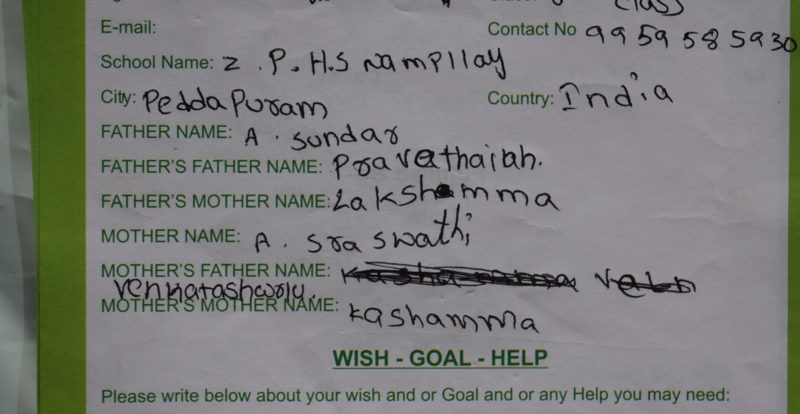 class
E-mail:
Contact No 9959585930
School Name: Z.P.H.S Nampllay
City: Peddapuram
Country: India
FATHER NAME: A. Sundar
FATHER'S FATHER NAME: Pravathaiah.
FATHER'S MOTHER NAME: Lakshamma
MOTHER NAME: A. Sraswathi
MOTHER'S FATHER NAME:
Venkatashwrlu.
MOTHER'S MOTHER NAME: Kashamma
WISH - GOAL - HELP
Please write below about your wish and or Goal and or any Help you may need: